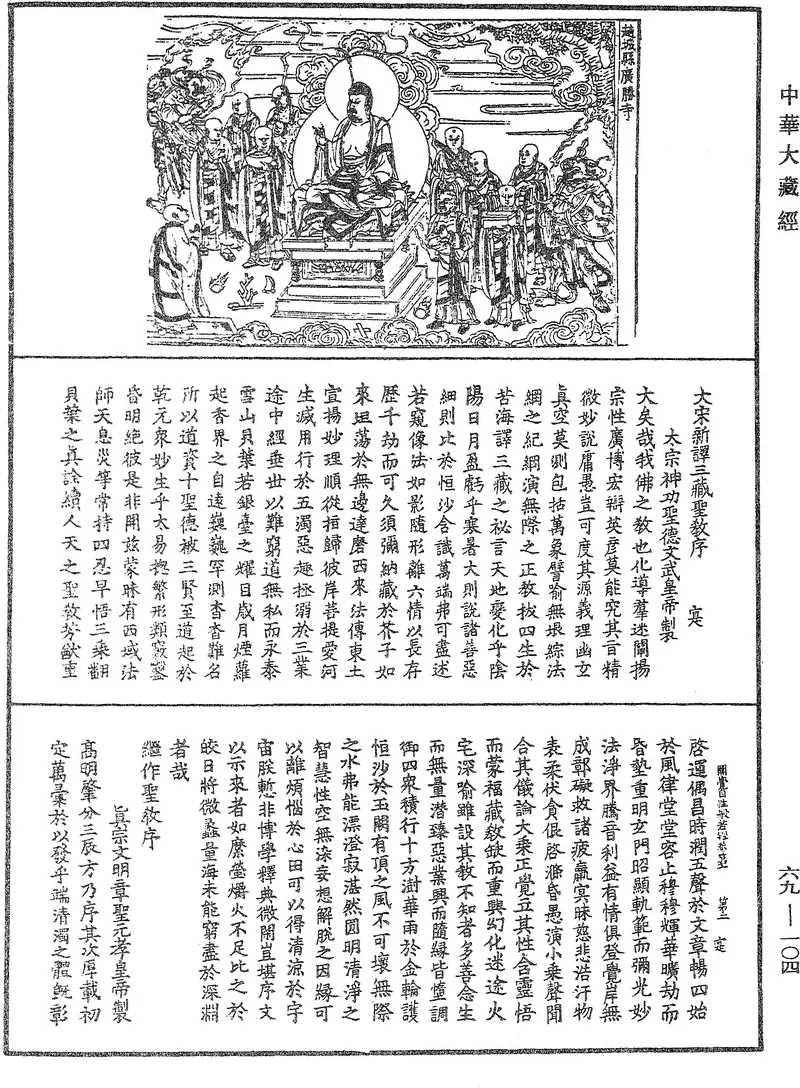 中華大藏經
趙城縣廣勝寺
大宋新譯三藏聖教序 定
太宗神功聖德文武皇帝製
大矣哉我佛之教也化導羣迷闡揚
宗性廣博宏辯英彥莫能究其旨精
微妙說庸愚豈可度其源義理幽玄
真空莫測包括萬象譬喻無垠綜法
網之紀綱演無際之正教拔四生於
苦海譯三藏之祕言天地變化乎陰
陽日月盈虧乎寒暑大則說諸善惡
細則比於恒沙含識萬端弗可盡述
若窺像法如影隨形離六情以長存
歷千劫而可久須彌納藏於芥子如
來坦蕩於無邊達磨西來法傳東土
宣揚妙理順從指歸彼岸菩提愛河
生滅用行於五濁惡趣拯溺於三業
途中經垂世以難窮道無私而永泰
雪山貝葉若銀臺之耀目歲月煙蘿
起香界之自遠巍巍罕測杳杳難名
所以道資十聖德被三賢至道起於
乾元眾妙生乎太易揔繁形類竅鑿
昏明絕彼是非開茲蒙昧有西域法
師天息災等常持四忍早悟三乘翻
貝葉之真詮續人天之聖教芳猷重
第二 定
啓運偶昌時潤五聲於文章暢四始
於風律堂堂容止穆穆輝華曠劫而
昏墊重明玄門昭顯軌範而彌光妙
法淨界騰音利益有情俱登覺岸無
成鄣礙救諸疲羸冥昧慈悲浩汗物
表柔伏貪佷啓滌昏愚演小乘聲聞
合其儀論大乘正覺立其性含靈悟
而蒙福藏教缺而重興幻化迷途火
宅深喻雖設其教不知者多善念生
而無量潛臻惡業興而隨緣皆墮調
御四眾積行十方澍華雨於金輪護
恒沙於玉闕有頂之風不可壞無際
之水弗能漂澄寂湛然圓明清淨之
智慧性空無染妄想解脫之因緣可
以離煩惱於心田可以得清涼於宇
宙朕慙非博學釋典微閑豈堪序文
以示來者如縻螢爝火不足比之於
皎日將微蠡量海未能窮盡於深淵
者哉
繼作聖教序
真宗文明章聖元孝皇帝製
高明肇分三辰方乃序其次厚載初
定萬彙於以發乎端清濁之體既彰
六九—一〇四